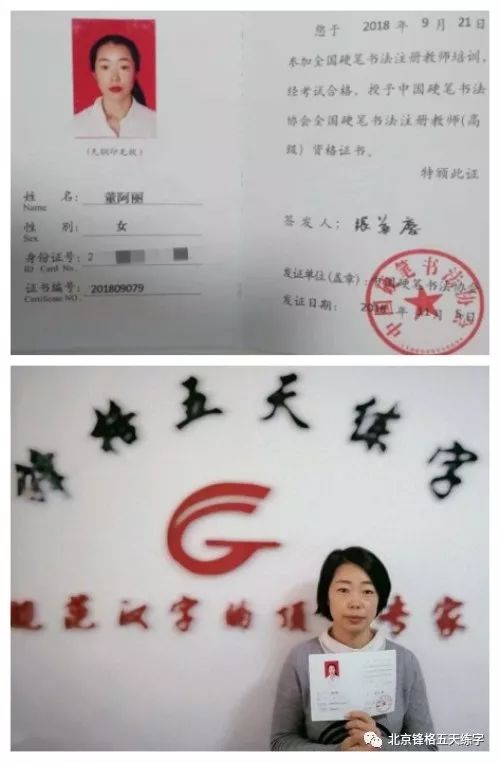 您于 2018 年 9 月 21 日
参加全国硬笔书法注册教师培训,
经考试合格,授予中国硬笔书法
协会全国硬笔书法注册教师(高
级)资格证书。
特颁此证
(无钢印无效)
姓 名: 董阿丽
Name
性 别: 女
Sex
身份证号: 2
ID Card No.
证书编号: 201809079
Certificate NO.
签发人: 张华庆
发证单位(盖章): 中国硬笔书法协会
发证日期: 年 11 月 5 日
中国硬笔书法协会
锋格五天练字
规范汉字的顶 专家
北京锋格五天练字